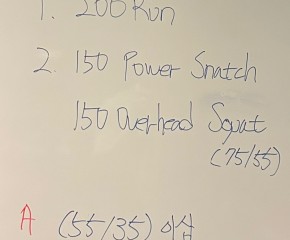 1. 200 Run
2. 150 Power Snatch
150 Overhead Squat
(75/55)
A (55/35) 이상